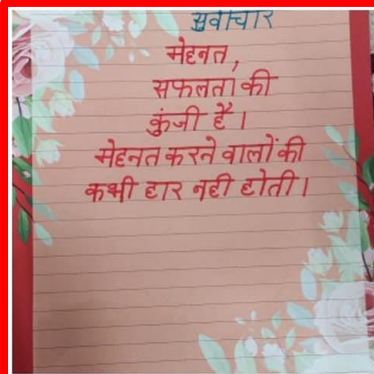 सुवाचार
मेहनत,
सफलता की
कुंजी है।
मेहनत करने वालों की
कभी हार नही होती।